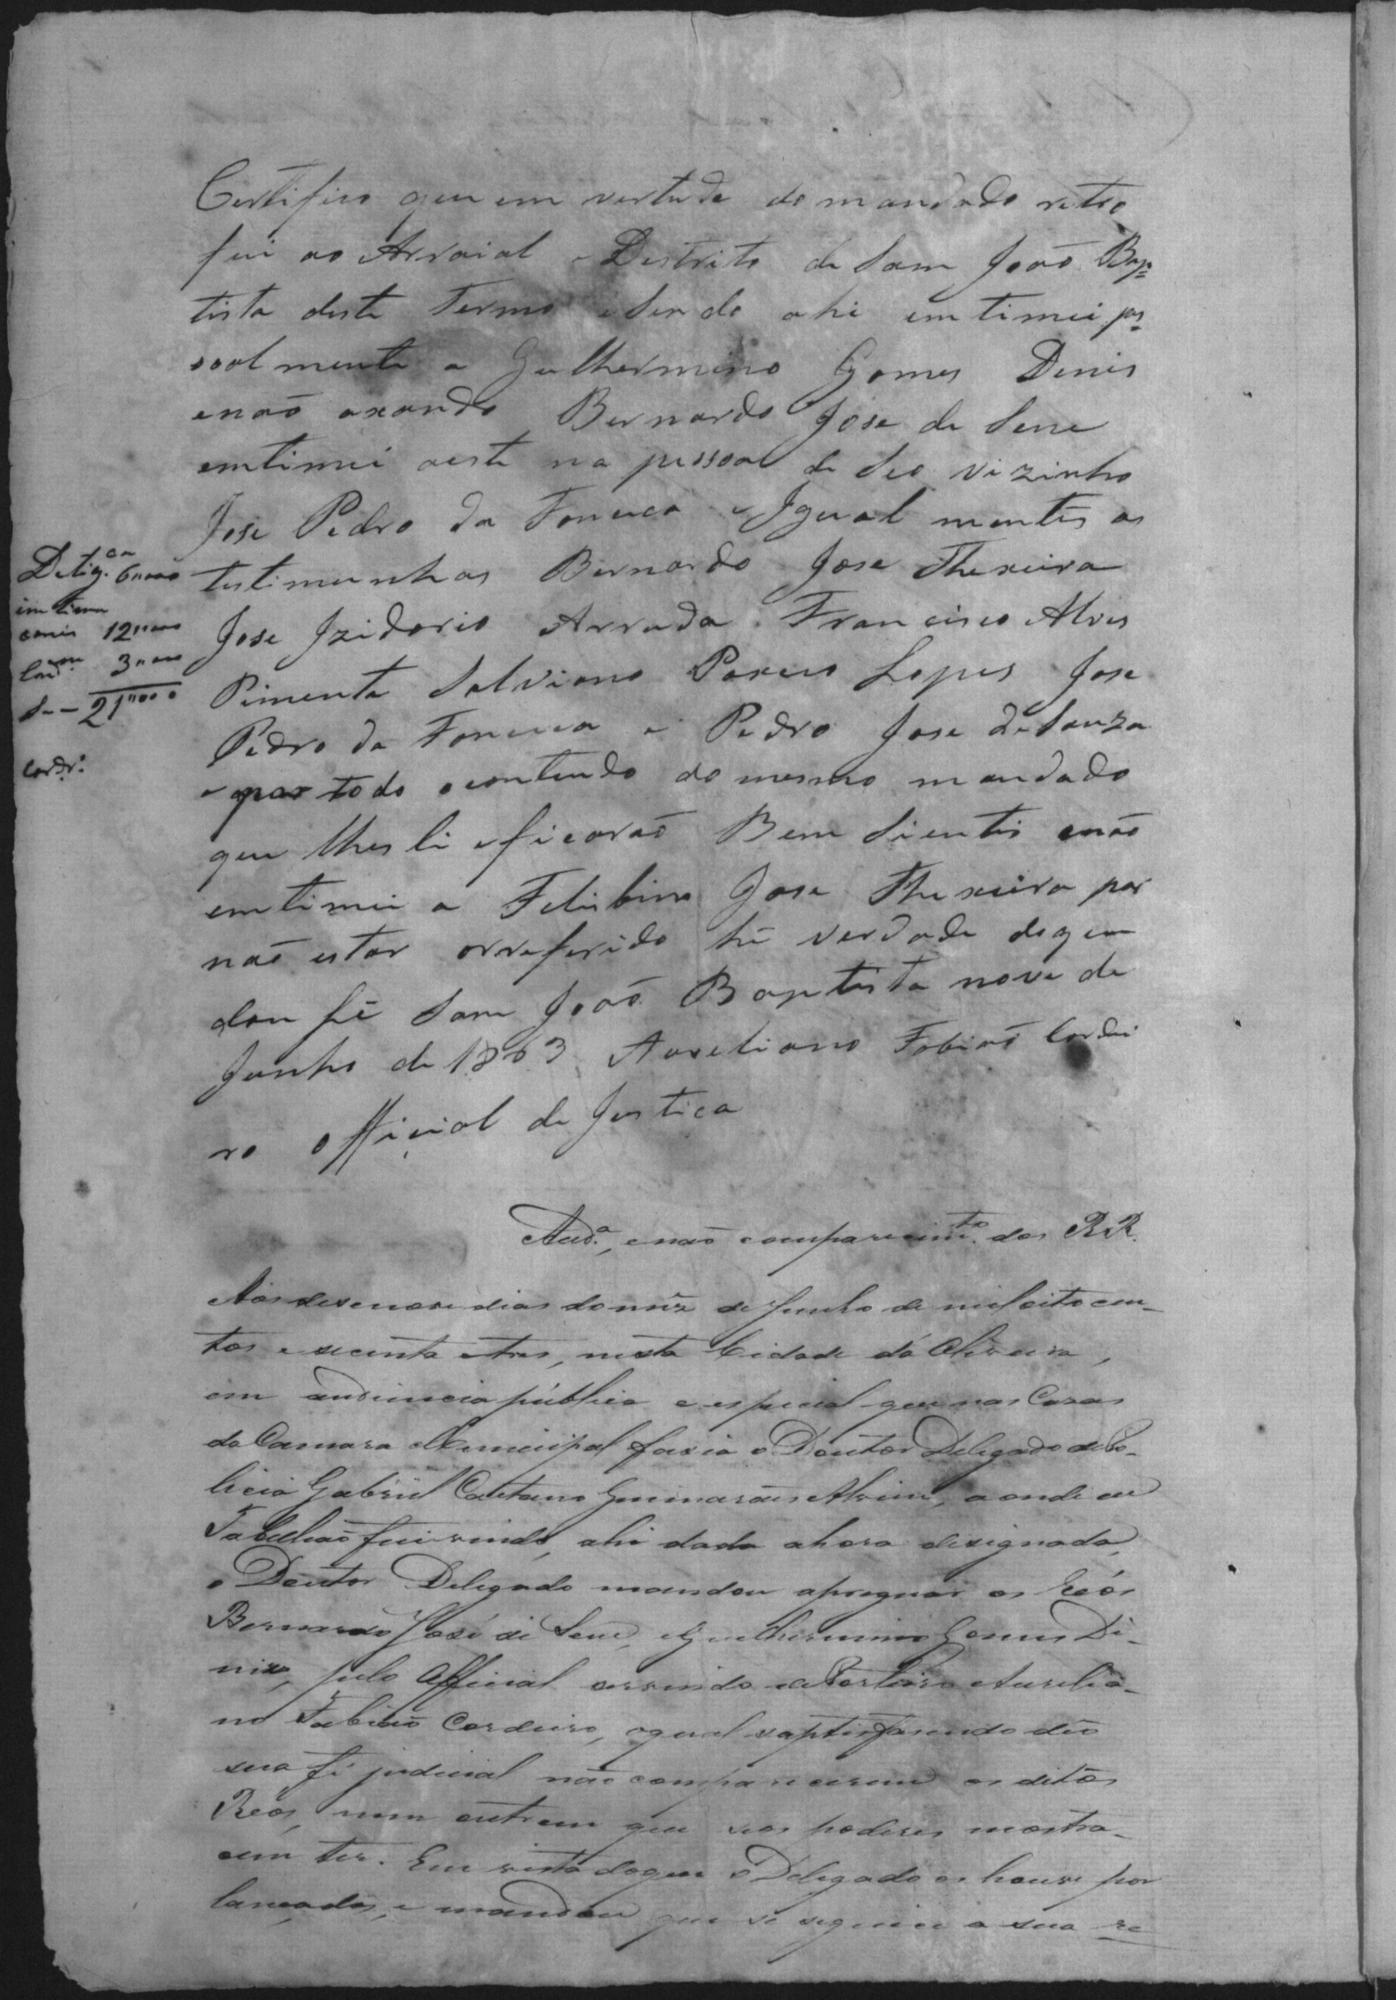 Certifico que em vertude do mandado retro
fui ao Arraial e Destrito de Sam João Bap=
tista deste Termo e sendo ahi emtimei pes=
soal mente a Gulhermino Gomes Denis
e não axando Bernardo Jose de Sene
emtimei aeste na pessoa de Seo vizinho
Jose Pedro da Fonceca e Igual mentes as
testimunhas Bernardo Jose Thexeira
Jose Izidorio Arruda Francisco Alves
Pimenta Salviano Lopes Jose
Pedro da Fonceca e Pedro Jose de Souza
e por todo o conteudo do mesmo mandado
que lhes li e ficarão Bem Sientis e não
emtimei a Felisbino Jose Thexeira por
não estar orreferido hé verdade do que
dou fé Sam João Baptista nove de
Junho de 1863 Aureliano Fabião Cordei
ro Official de Justica
Delig.ca 6"000
intima
conis 12"000
3"000
S-- 21"000
Cordr.º
Aud.ª, e não comparecim.to dos RR.
Aos desenove dias do mez de Junho de mil oito cen-
tos e secenta e tres, nesta Cidade da Oliveira,
em audiencia publica e especial que nas Cazas
da Camara Municipal fazia o Doutor Delegado de Po-
licia Gabriel Caetano Guimarães Alvim, a onde eu
Tabelião fui vindo, ahi dada a hora designada,
o Doutor Delegado mandou apregoar os Réos
Bernardo José de Sene, e Guilhermino Gomes Di-
niz, pelo Official servindo de Porteiro Aurelia-
no Fabião Cordeiro, o qual saptisfasendo deo
sua fé judicial não comparecerem os ditos
Reos, nem outrem que seos poderes mostra-
cem ter. Em vista do que o Delegado os houve por
lançados, e mandou que se seguice a sua re